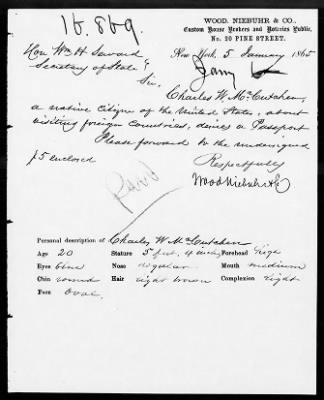 16.869
WOOD, NIEBUHR & CO.,
Custom House Brokers and Notaries Public,
No. 20 PINE STREET.
New York, 5 January 1865
Hon Wm H Seward
Secretary of State
Sir,
Charles W. McCutchen,
a native Citizen of the United States, about
visiting foreign Countries, desires a Passport
Please forward to the undersigned
$5 enclosed
Respectfully
Wood Niebuhr & Co
Personal description of Charles W McCutchen
Age 20 Stature 5 feet, 4 inches Forehead high
Eyes blue Nose regular Mouth medium
Chin round Hair light brown Complexion light
Face Oval